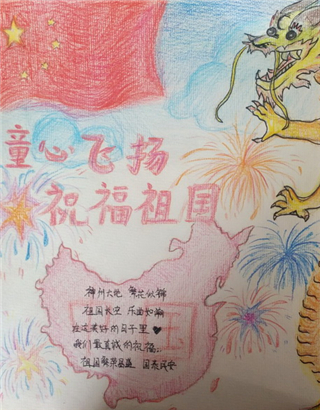 童心飞扬
祝福祖国
神州大地 繁花似锦
祖国长空 乐曲如潮
在这美好的日子里
我们最真诚的祝福
祖国繁荣昌盛 国泰民安